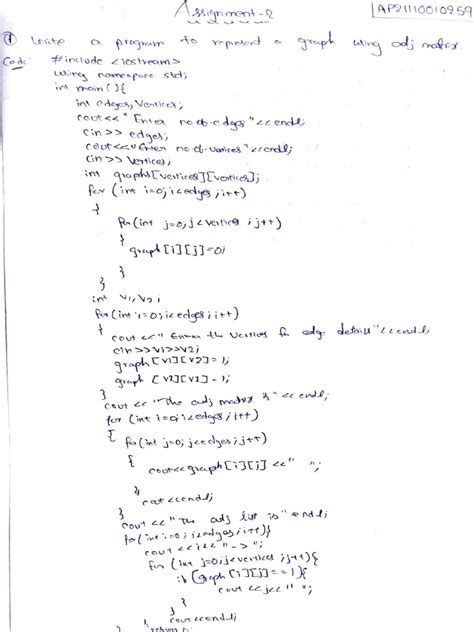 Assignment-2
AP21110010259
① Write a program to represend a graph using adj matrix
Code: #include <iostream>
using namespace std;
int main(){
int edges, Vertices;
cout<<"Enter no of edges"<<endl;
cin>> edges;
cout<<"Enter no of. vertices"<<endl;
cin>> Vertices;
int graph[vertices][vertices];
for (int i=0; i<edges; i++)
{
for (int j=0; j<vertices; j++)
{
graph[i][j]=0;
}
}
int V1, V2;
for (int i=0; i<edges; i++)
{
cout<<" Enter the Vertices for edge details"<<endl;
cin>>V1>>V2;
graph [V1][V2]=1;
graph [V2][V1]=1;
}
cout << "The adj matrix is" << endl;
for (int i=0; i<edges; i++)
{ for (int j=0; j<edges; j++)
{
cout<<graph[i][j] <<" ";
}
cout<<endl;
}
cout << "The adj list is" endl;
for (int i=0; i<edges; i++){
cout <<i<< "->";
for (int j=0; j<vertices; j++){
if (graph[i][j]==1){
cout <<j<<" ";
}
}
cout<<endl;
}
return 0;